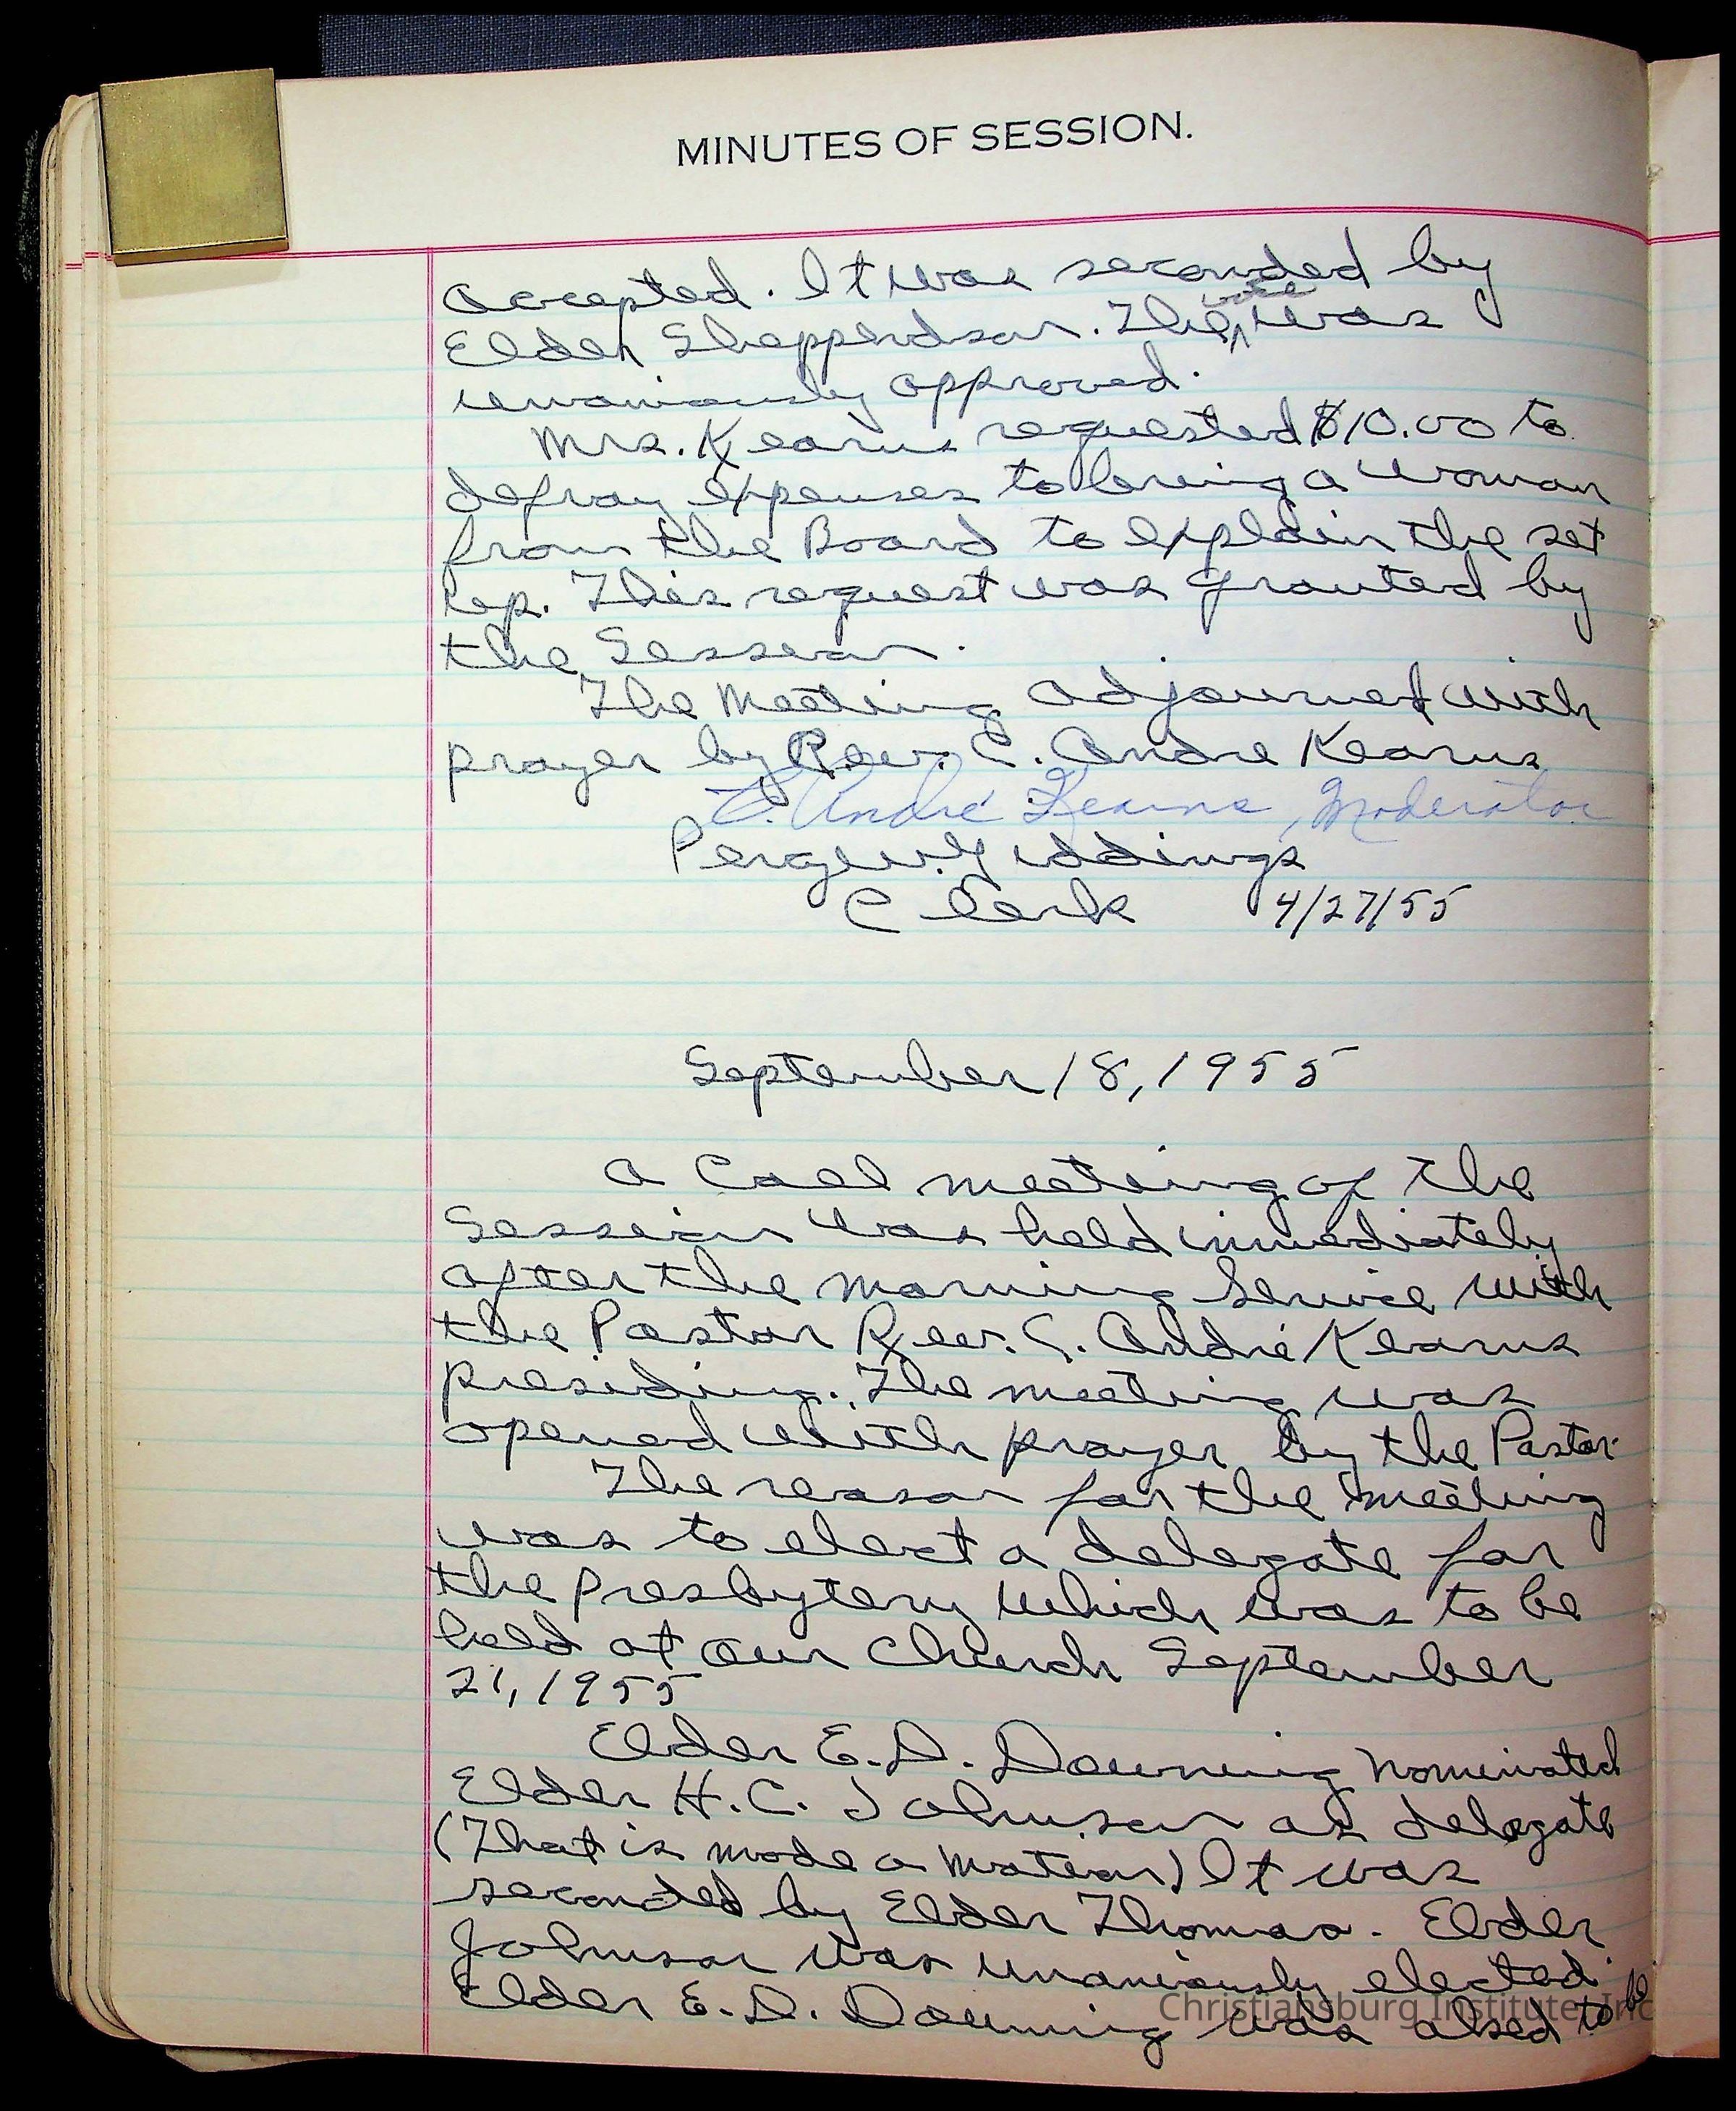 MINUTES OF SESSION.
accepted. It was seconded by
Elder Shepperdson. The vote was
unaniously approved.
Mrs. Kearns requested $10.00 to
defray expenses to bring a woman
from the Board to explain the set
up. This request was granted by
the Session.
The Meeting adjourned with
prayer by Rev. C. Andre Kearns
C. André Kearns, Moderator
Giddings
Clerk 4/27/55
September 18, 1955
A Call meeting of the
Session was held immediately
after the morning Service with
the Pastor Rev. C. André Kearns
presiding. The meeting was
opened with prayer by the Pastor.
The reason for the meeting
was to elect a delegate for
the Presbytery which was to be
held at our Church September
21, 1955
Elder E.D. Downing nominated
Elder H.C. Johnson as delegate
(That is made a motion) It was
seconded by Elder Thomas. Elder
Johnson was unaniously elected.
Elder E.D. Downing was alsed to be
Christiansburg Institute, Inc